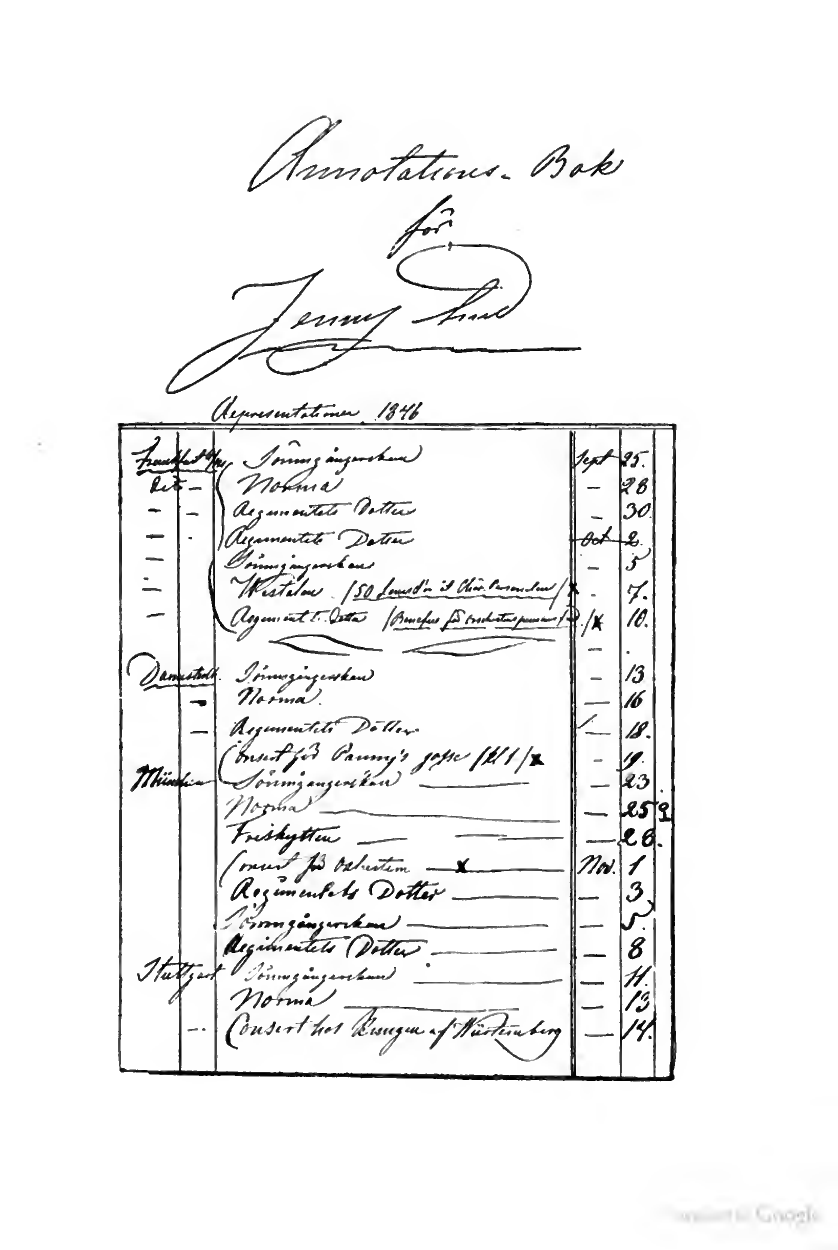 Annotations-Bok
för
Jenny Lind
Representationer 1846
Frankfurt Sömngångerskan Sept 25.
Dito — Norma — 28
— — Regementets Dotter — 30
— Regementets Dotter Oct 2.
— Sömngångerskan - 5
— Westalen. / 50 Louisd'or åt Chör. Personalen / x - 7.
— Regement. Dotter / Benefice för / x 10.
— .
Darmstadt. Sömngångerskan — 13
— Norma. — 16
— Regementets Dotter — 18.
Consert för Pauny's x - 19.
München Sömngångerskan — — 23.
Norma — — 25
Friskytten — — — 28.
Consert för Orkestern — x — Nov. 1
Regimentets Dotter — — 3
Sömngångerskan — — 5.
Regimentets Dotter — — 8
Stuttgart Sömngångerskan — — 11.
Norma — — 13
— Consert hos Kungen af Würtemberg — 14.
Google